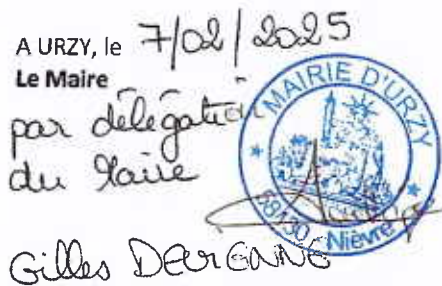 A URZY, le 7/02/2025
Le Maire
par délégation
du Maire
MAIRIE D'URZY
58130 Nièvre
Gilles